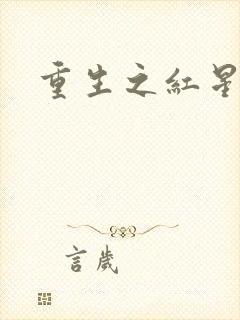 重生之紅星
言歲